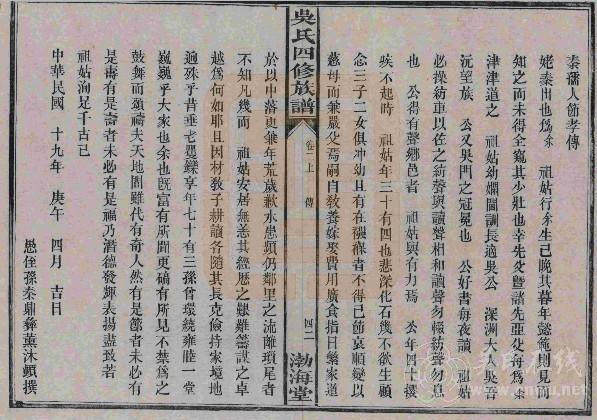 秦孺人節孝傳
姥秦出也為余　祖姑行余生已晚其暮年懿範則見而
知之而未得全窺其少壯也幸先爻暨諸先亞史每為余
津津道之　祖姑幼嫻閫訓長適吳公　深淵大人吳吾
沅望族　公又吳門之冠冕也　公好書每夜讀　祖姑
必操紡車以佐之紡聲與讀聲相和讀聲勿輟紡聲勿息
也　公得有聲鄉邑者　祖姑與有力焉　公年四十攖
疾不起時　祖姑年三十有四也悲深化石幾不欲生顧
念三子二女俱冲幼且有在襁褓者不得已節哀順變以
慈母而兼嚴父焉嗣自教養嫁娶費用廣食指日繁家道
吳氏四修族譜
卷二上　傳
四二
渤海堂
於以中落更兼年荒歲歉水患頻仍鄰里之流離瑣尾者
不知凡幾而　祖姑安居無恙其經歷之艱難籌謀之卓
越為何如耶且因材敎子耕讀各隨其長克儉持家境地
適殊乎昔垂老矍鑠享年七十有三孫曾環繞雍睦一堂
巍巍乎大家也余也既富有所聞更確有所見不禁為之
鼓舞而頌禱夫天地間雖代有奇人然有是節者未必有
是壽有是壽者未必有是福乃潛德發輝表揚盡致若
祖姑洵足千古已
中華民國　十九年　庚午　四月　吉日
愚侄孫秦鼎彝薰沐頓撰